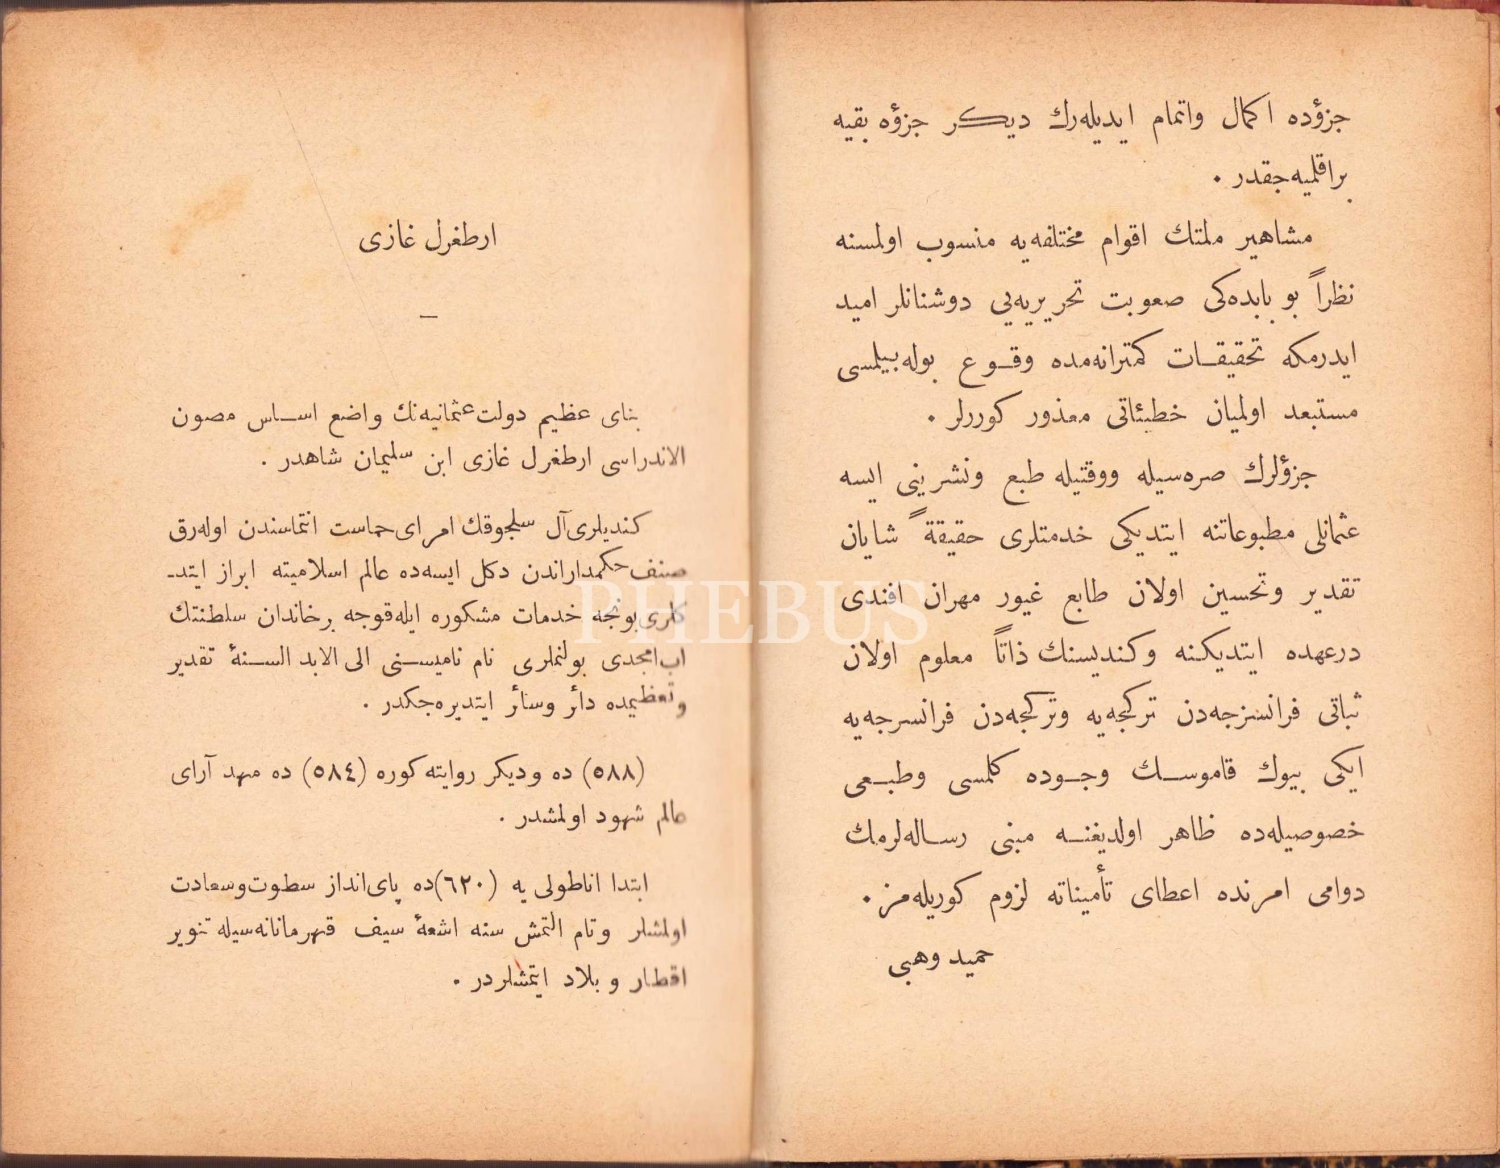 جزؤده اكمال واتمام ايديله‌رك ديكر جزؤه بقيه
براقلميه‌جقدر .
مشاهير ملتك اقوام مختلفه‌يه منسوب اولمسنه
نظراً بو بابده‌كی صعوبت تحريريه‌يی دوشنانلر اميد
ايدرمكه تحقيقات كمترانه‌مده وقوع بوله‌بيلمسی
مستبعد اولميان خطيئاتی معذور كوررلر .
جزؤلرك صره‌سيله ووقتيله طبع ونشرينی ايسه
عثمانلی مطبوعاتنه ايتديكی خدمتلری حقيقةً شايان
تقدير وتحسين اولان طابع غيور مهران افندی
درعهده ايتديكنه وكنديسنك ذاتاً معلوم اولان
ثباتی فرانسزجه‌دن تركجه‌يه وتركجه‌دن فرانسزجه‌يه
ايكی بيوك قاموسك وجوده كلمسی وطبعی
خصوصيله‌ده ظاهر اولديغنه مبنی رساله‌لرمك
دوامی امرنده اعطای تأميناته لزوم كوريله‌مز .
حميد وهبی
ارطغرل غازی
—
بنای عظيم دولت عثمانيه‌نك واضع اساس مصون
الاندراسی ارطغرل غازی ابن سليمان شاهدر .
كنديلری آل سلجوقك امرای حماست انتماسندن اوله‌رق
صنف حكمداراندن دكل ايسه‌ده عالم اسلاميته ابراز ايتد-
كلری بونجه خدمات مشكوره ايله قوجه برخاندان سلطنتك
اب امجدی بولنملری نام ناميسنی الی الابد السنهٔ تقدير
وتعظيمده دائر وسائر ايتديره‌جكدر .
(٥٨٨) ده وديكر روايته كوره (٥٨٤) ده مهد آرای
عالم شهود اولمشدر .
ابتدا اناطولی يه (٦٢٠)ده پای‌انداز سطوت‌وسعادت
اولمشلر وتام التمش سنه اشعهٔ سيف قهرمانانه‌سيله تنوير
اقطار و بلاد ايتمشلردر .
PHEBUS